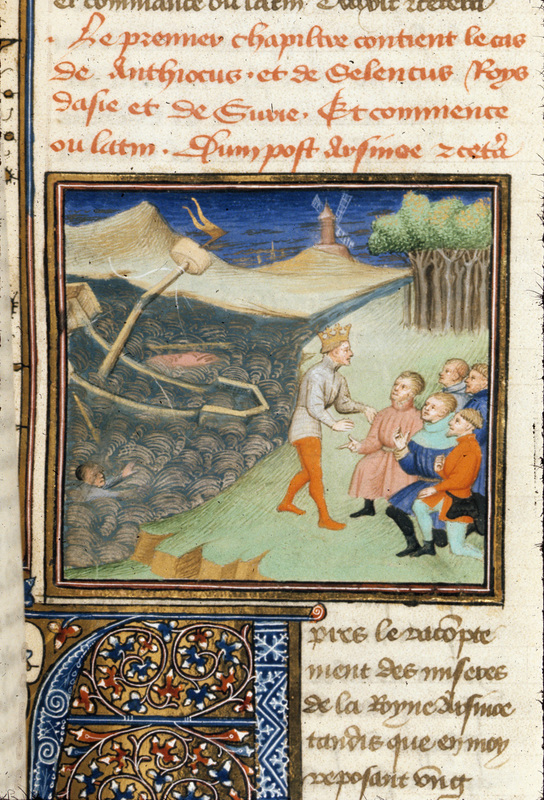 et commance ou latin
Le premier chapiltre contient le cas
de Anthiocus. et de Selencus Roys
dasie et de Surie. Et commence
ou latin. Dum post Arsinoe
pres le racõpte
ment des miseres
de la Royne Arsinoe
tandis que en moy
reposant vng